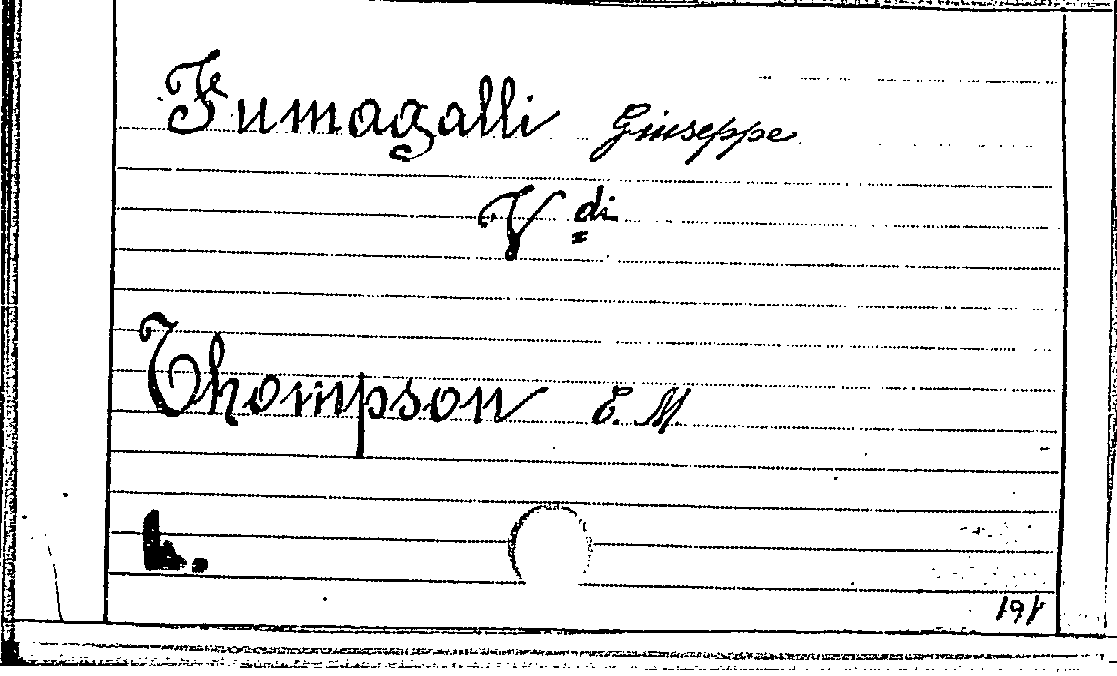 Fumagalli Giuseppe
V di
Thompson E. M.
L.
191